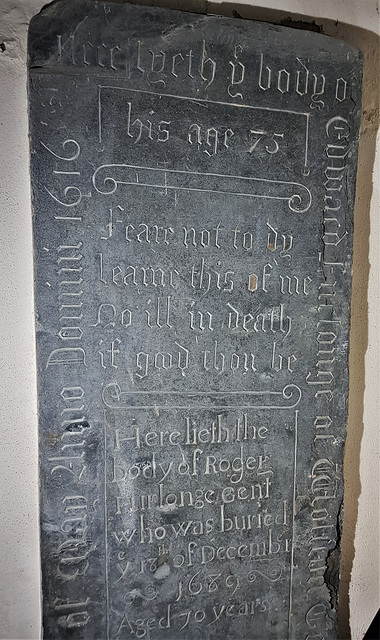 Here lyeth yͤ body o
Edward Furlonge of
of May Anno Domini 1616
his age 75
Feare not to dy
Learne this of me
No ill in death
if good thou be
Here lieth the
body of Roger
Furlonge Gent
who was buried
of Decembr
1689
Aged 70 years